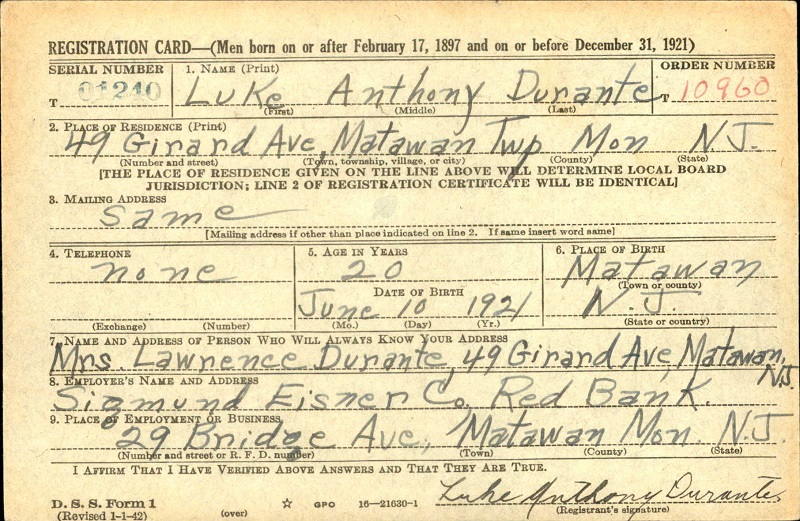 REGISTRATION CARD—(Men born on or after February 17, 1897 and on or before December 31, 1921)
SERIAL NUMBER
T 01240
1. NAME (Print)
Luke Anthony Durante
(First) (Middle) (Last)
ORDER NUMBER
T 10960
2. PLACE OF RESIDENCE (Print)
49 Girard Ave, Matawan Twp Mon N.J.
(Number and street) (Town, township, village, or city) (County) (State)
[THE PLACE OF RESIDENCE GIVEN ON THE LINE ABOVE WILL DETERMINE LOCAL BOARD
JURISDICTION; LINE 2 OF REGISTRATION CERTIFICATE WILL BE IDENTICAL]
3. MAILING ADDRESS
same
[Mailing address if other than place indicated on line 2. If same insert word same]
4. TELEPHONE
none
(Exchange) (Number)
5. AGE IN YEARS
20
DATE OF BIRTH
June 10 1921
(Mo.) (Day) (Yr.)
6. PLACE OF BIRTH
Matawan
(Town or county)
N.J.
(State or country)
7. NAME AND ADDRESS OF PERSON WHO WILL ALWAYS KNOW YOUR ADDRESS
Mrs. Lawrence Durante, 49 Girard Ave, Matawan, N.J.
8. EMPLOYER'S NAME AND ADDRESS
Sigmund Eisner Co. Red Bank.
9. PLACE OF EMPLOYMENT OR BUSINESS
29 Bridge Ave, Matawan Mon. N.J.
(Number and street or R. F. D. number) (Town) (County) (State)
I AFFIRM THAT I HAVE VERIFIED ABOVE ANSWERS AND THAT THEY ARE TRUE.
Luke Anthony Durante
D. S. S. Form 1
(Revised 1-1-42) (over) ☆ GPO 16—21630-1 (Registrant's signature)